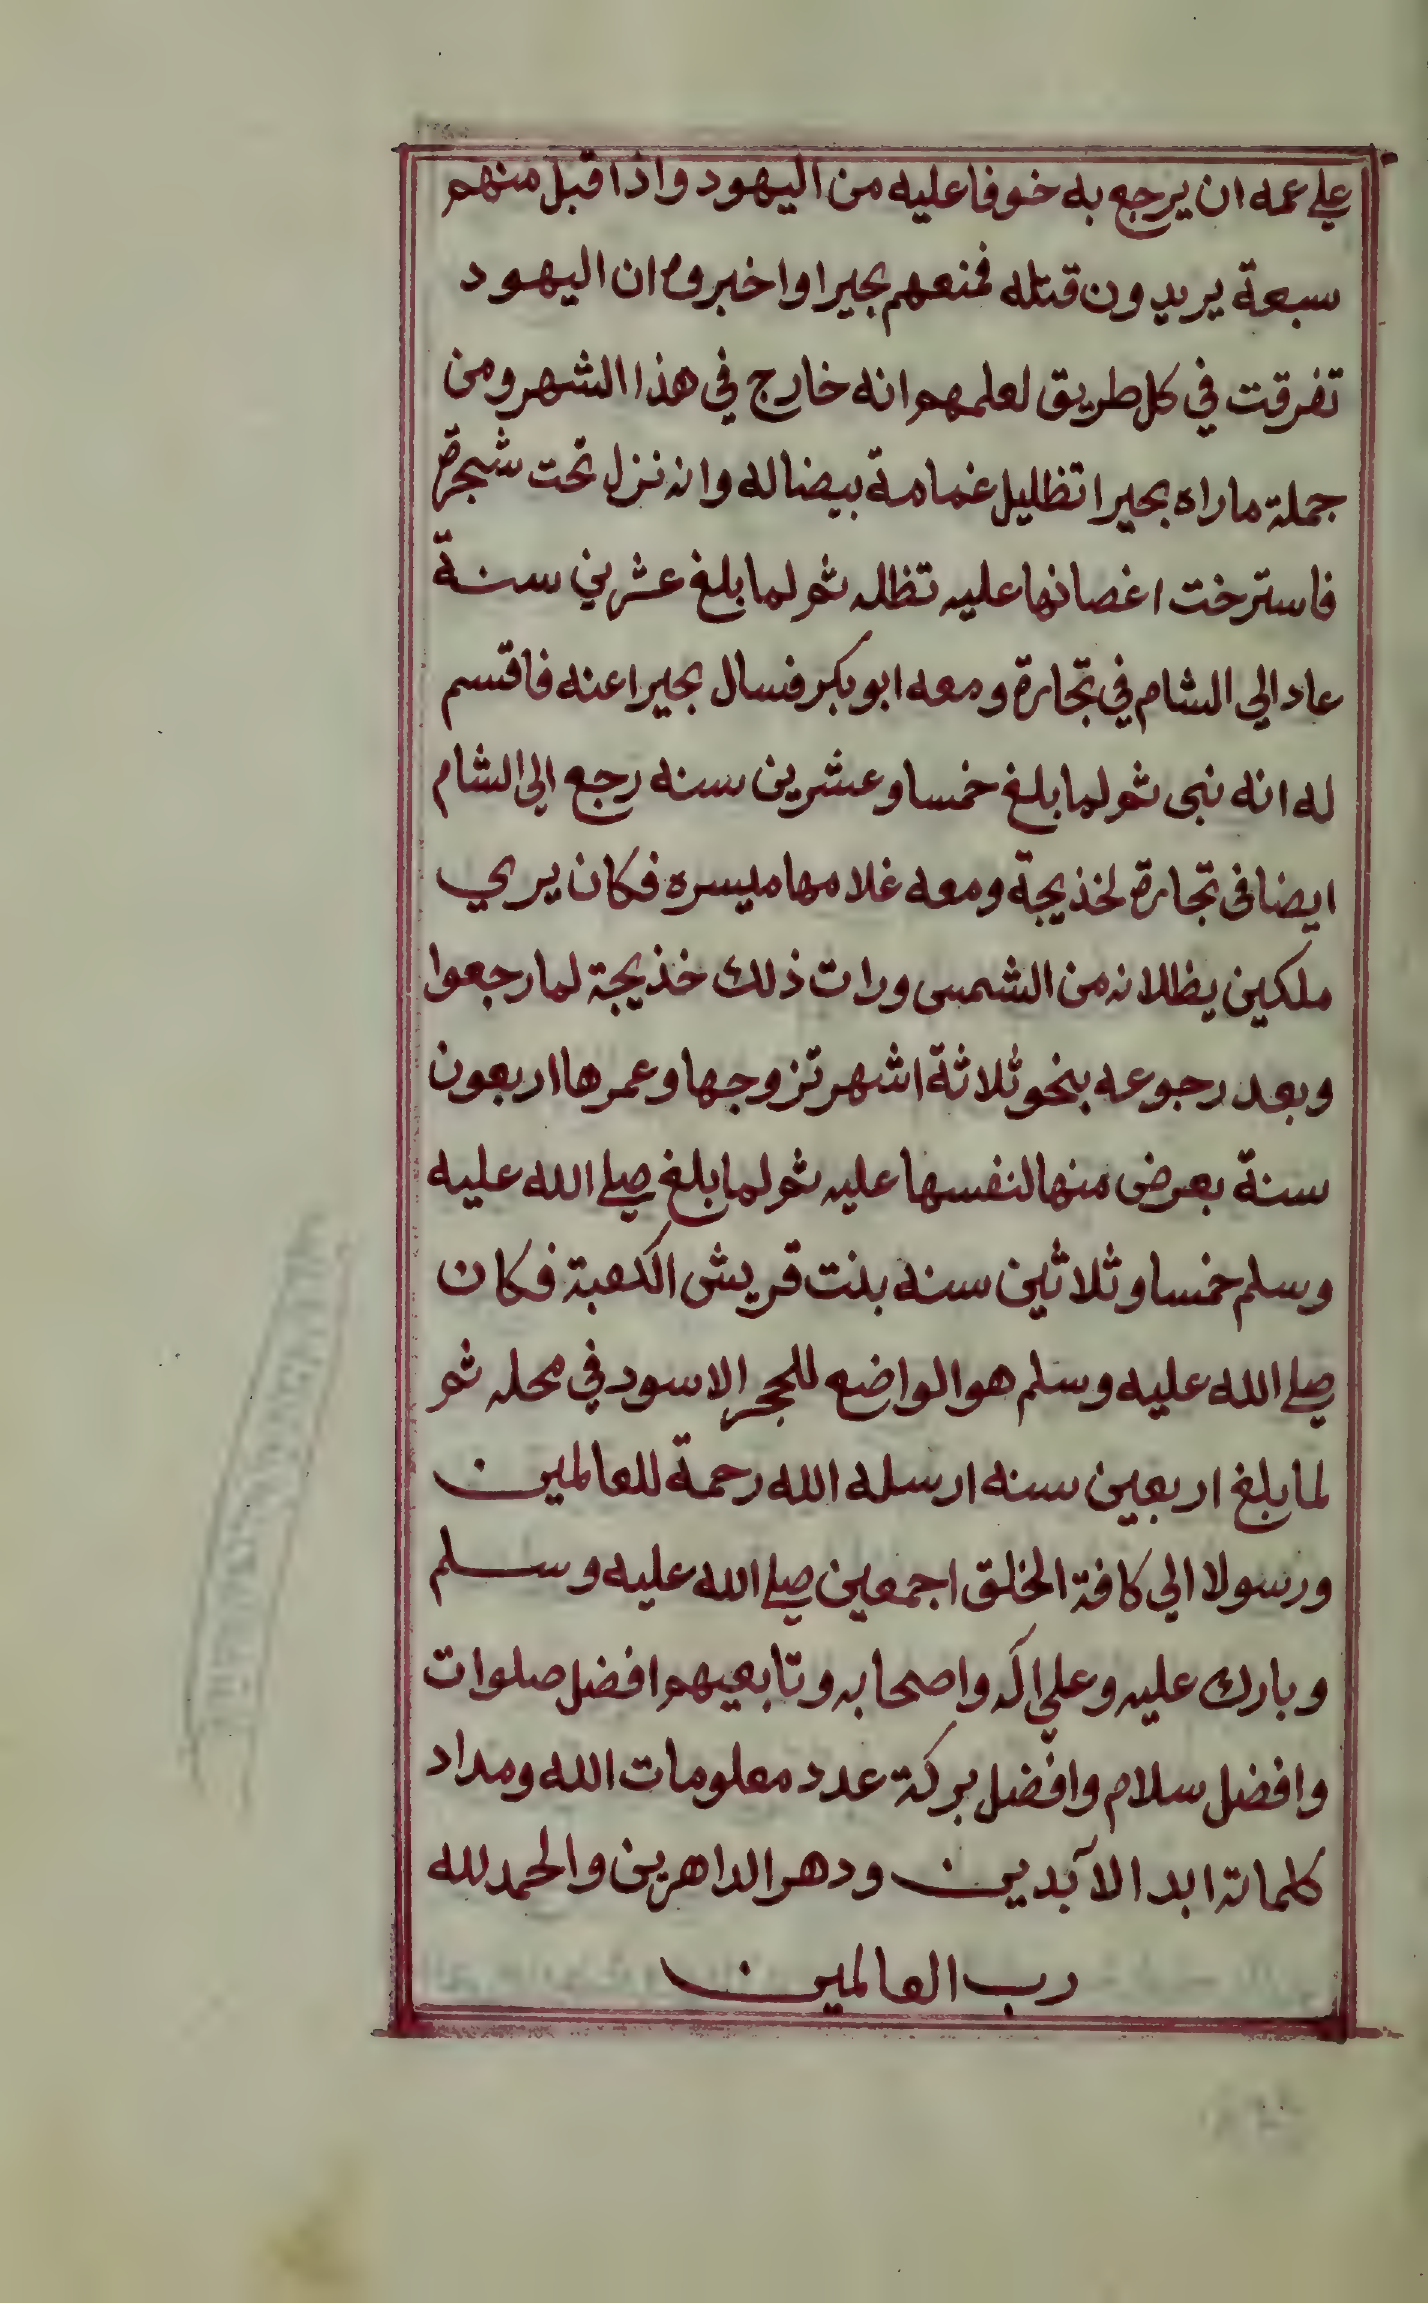 علي عمه ان يرجع به خوفا عليه من اليهود واذا قبل منهم
سبعة يريدون قتله فمنعهم بحيرا واخبروه ان اليهود
تفرقت في كل طريق لعلمهم انه خارج في هذا الشهر ومن
جملة ماراه بحيرا تظليل غمامة بيضاله وانه نزل تحت شجرة
فاسترخت اغصانها عليه تظله ثم لما بلغ عشرين سنة
عاد الي الشام في تجارة ومعه ابوبكر فسال بحيرا عنه فاقسم
له انه نبى ثم لما بلغ خمسا وعشرين سنه رجع الى الشام
ايضا فى تجارة لخذيجة ومعه غلامها ميسره فكان يري
ملكين يظلانه من الشمس ورات ذلك خذيجة لما رجعوا
وبعد رجوعه بنحو ثلاثة اشهر تزوجها وعمرها اربعون
سنة بعرض منها لنفسها عليه ثم لما بلغ صلي الله عليه
وسلم خمسا وثلاثين سنه بنت قريش الكعبة فكان
صلي الله عليه وسلم هو الواضع للحجر الاسود في محله ثم
لما بلغ اربعين سنه ارسله الله رحمة للعالمين
ورسولا الي كافة الخلق اجمعين صلي الله عليه وسلم
وبارك عليه وعلي اله واصحابه وتابعيهم افضل صلوات
وافضل سلام وافضل بركة عدد معلومات الله ومداد
كلماته ابد الآبدين ودهر الداهرين والحمد لله
رب العالمين